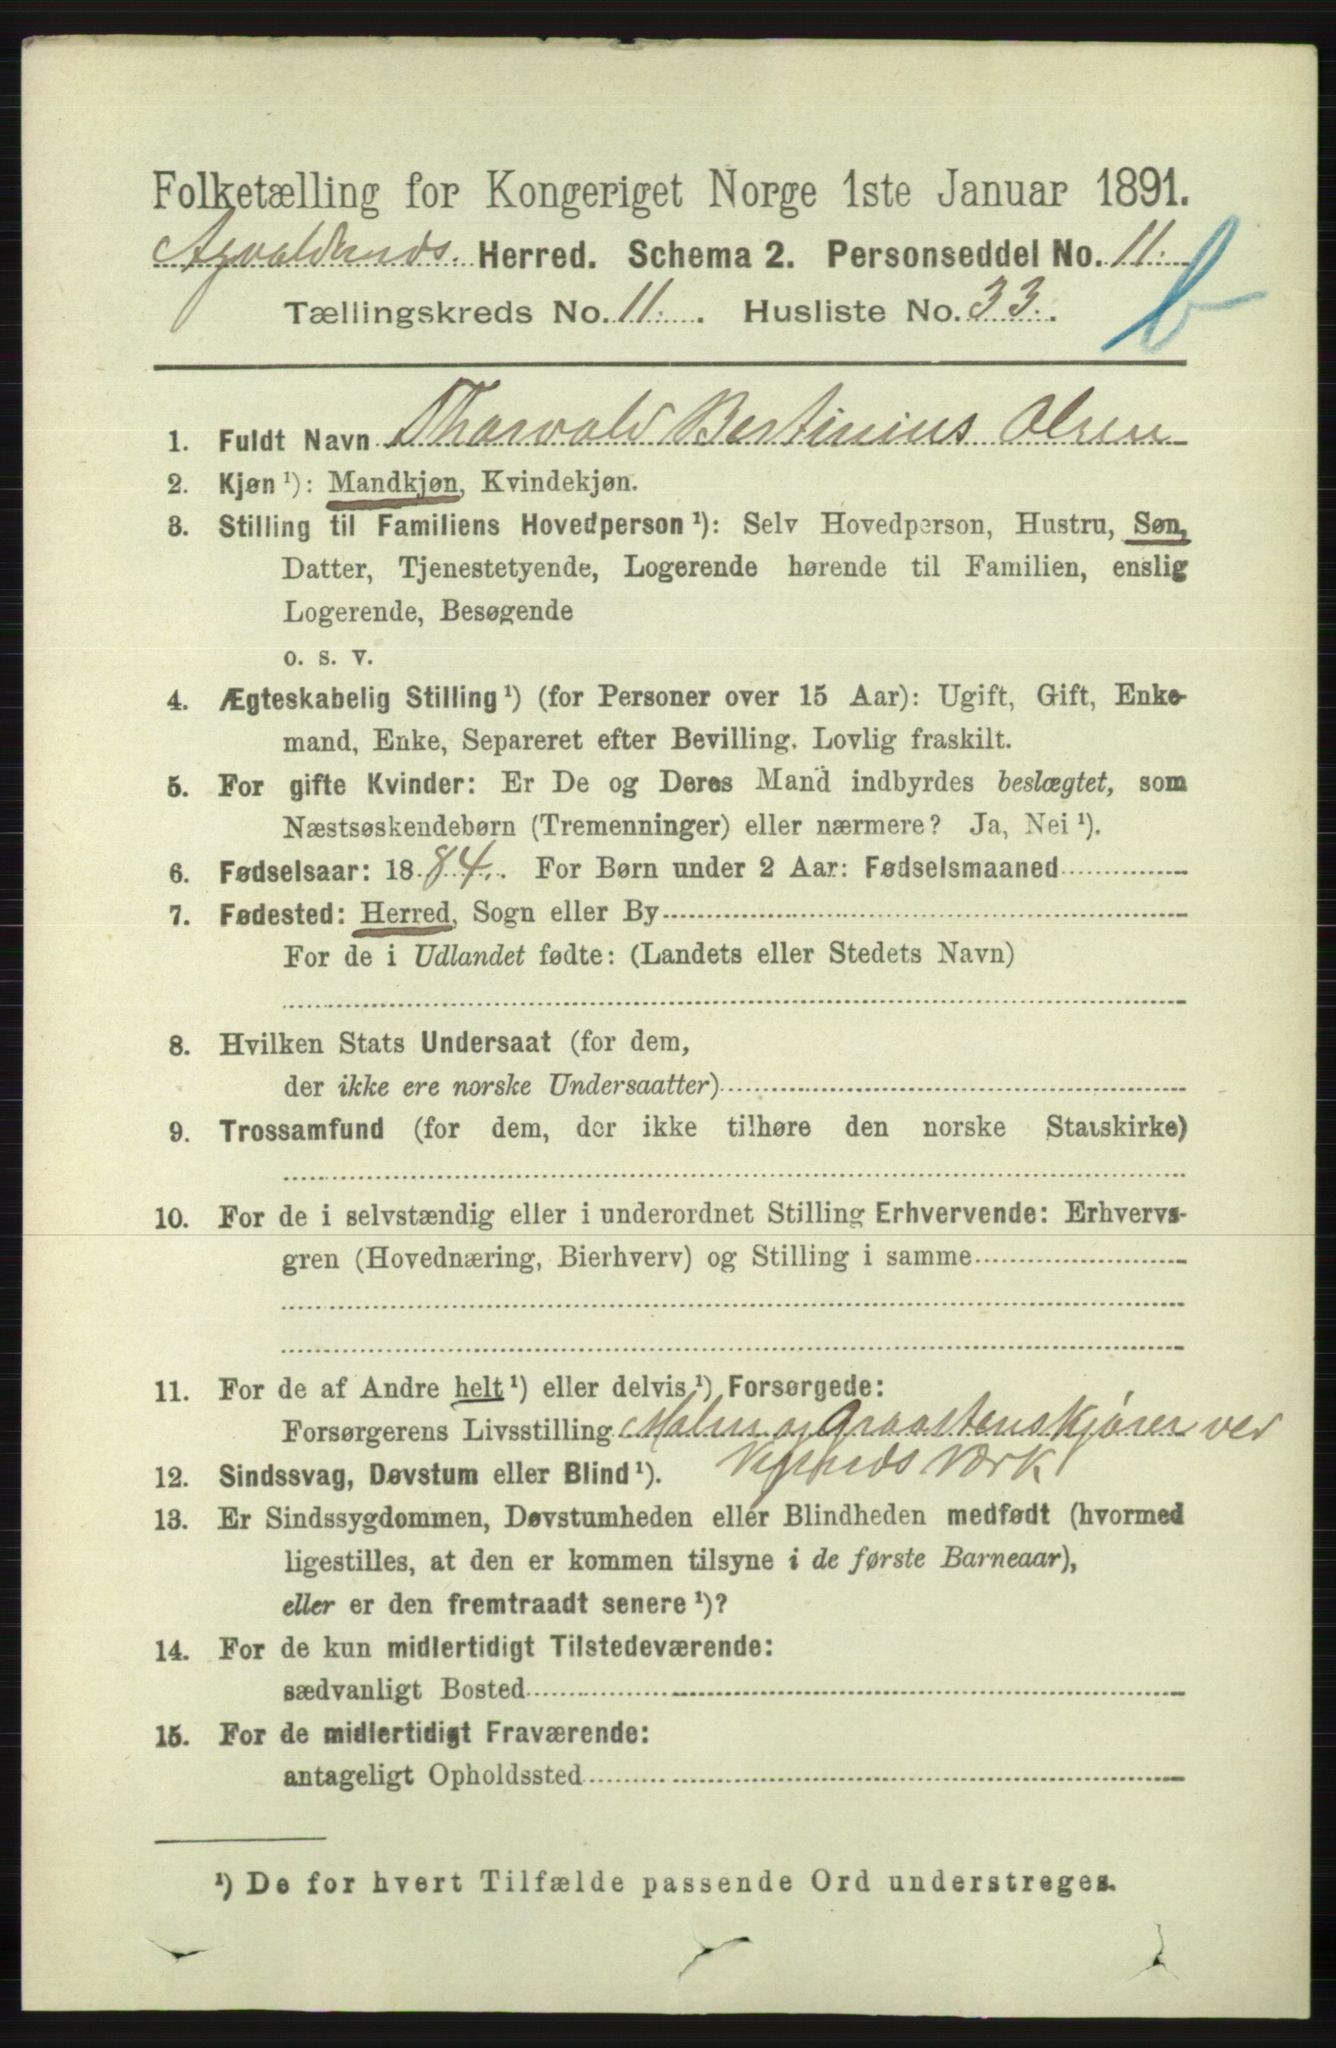 Folketælling for Kongeriget Norge 1ste Januar 1891.
Avaldsnes Herred. Schema 2. Personseddel No. 11.
b
Tællingskreds No. 11. Husliste No. 33.
1. Fuldt Navn Thorvald Bertinius Olsen
2. Kjøn ¹): Mandkjøn, Kvindekjøn.
3. Stilling til Familiens Hovedperson ¹): Selv Hovedperson, Hustru, Søn,
Datter, Tjenestetyende, Logerende hørende til Familien, enslig
Logerende, Besøgende
o. s. v.
4. Ægteskabelig Stilling ¹) (for Personer over 15 Aar): Ugift, Gift, Enke-
mand, Enke, Separeret efter Bevilling. Lovlig fraskilt.
5. For gifte Kvinder: Er De og Deres Mand indbyrdes beslægtet, som
Næstsøskendebørn (Tremenninger) eller nærmere? Ja, Nei ¹).
6. Fødselsaar: 1884. For Børn under 2 Aar: Fødselsmaaned
7. Fødested: Herred, Sogn eller By
For de i Udlandet fødte: (Landets eller Stedets Navn)
8. Hvilken Stats Undersaat (for dem,
der ikke ere norske Undersaatter)
9. Trossamfund (for dem, der ikke tilhøre den norske Statskirke)
10. For de i selvstændig eller i underordnet Stilling Erhvervende: Erhvervs-
gren (Hovednæring, Bierhverv) og Stilling i samme
11. For de af Andre helt ¹) eller delvis ¹) Forsørgede:
Forsørgerens Livsstilling Malm og Graastenskjører ved
Værk
12. Sindssvag, Døvstum eller Blind ¹).
13. Er Sindssygdommen, Døvstumheden eller Blindheden medfødt (hvormed
ligestilles, at den er kommen tilsyne i de første Barneaar),
eller er den fremtraadt senere ¹)?
14. For de kun midlertidigt Tilstedeværende:
sædvanligt Bosted
15. For de midlertidigt Fraværende:
antageligt Opholdssted
¹) De for hvert Tilfælde passende Ord understreges.